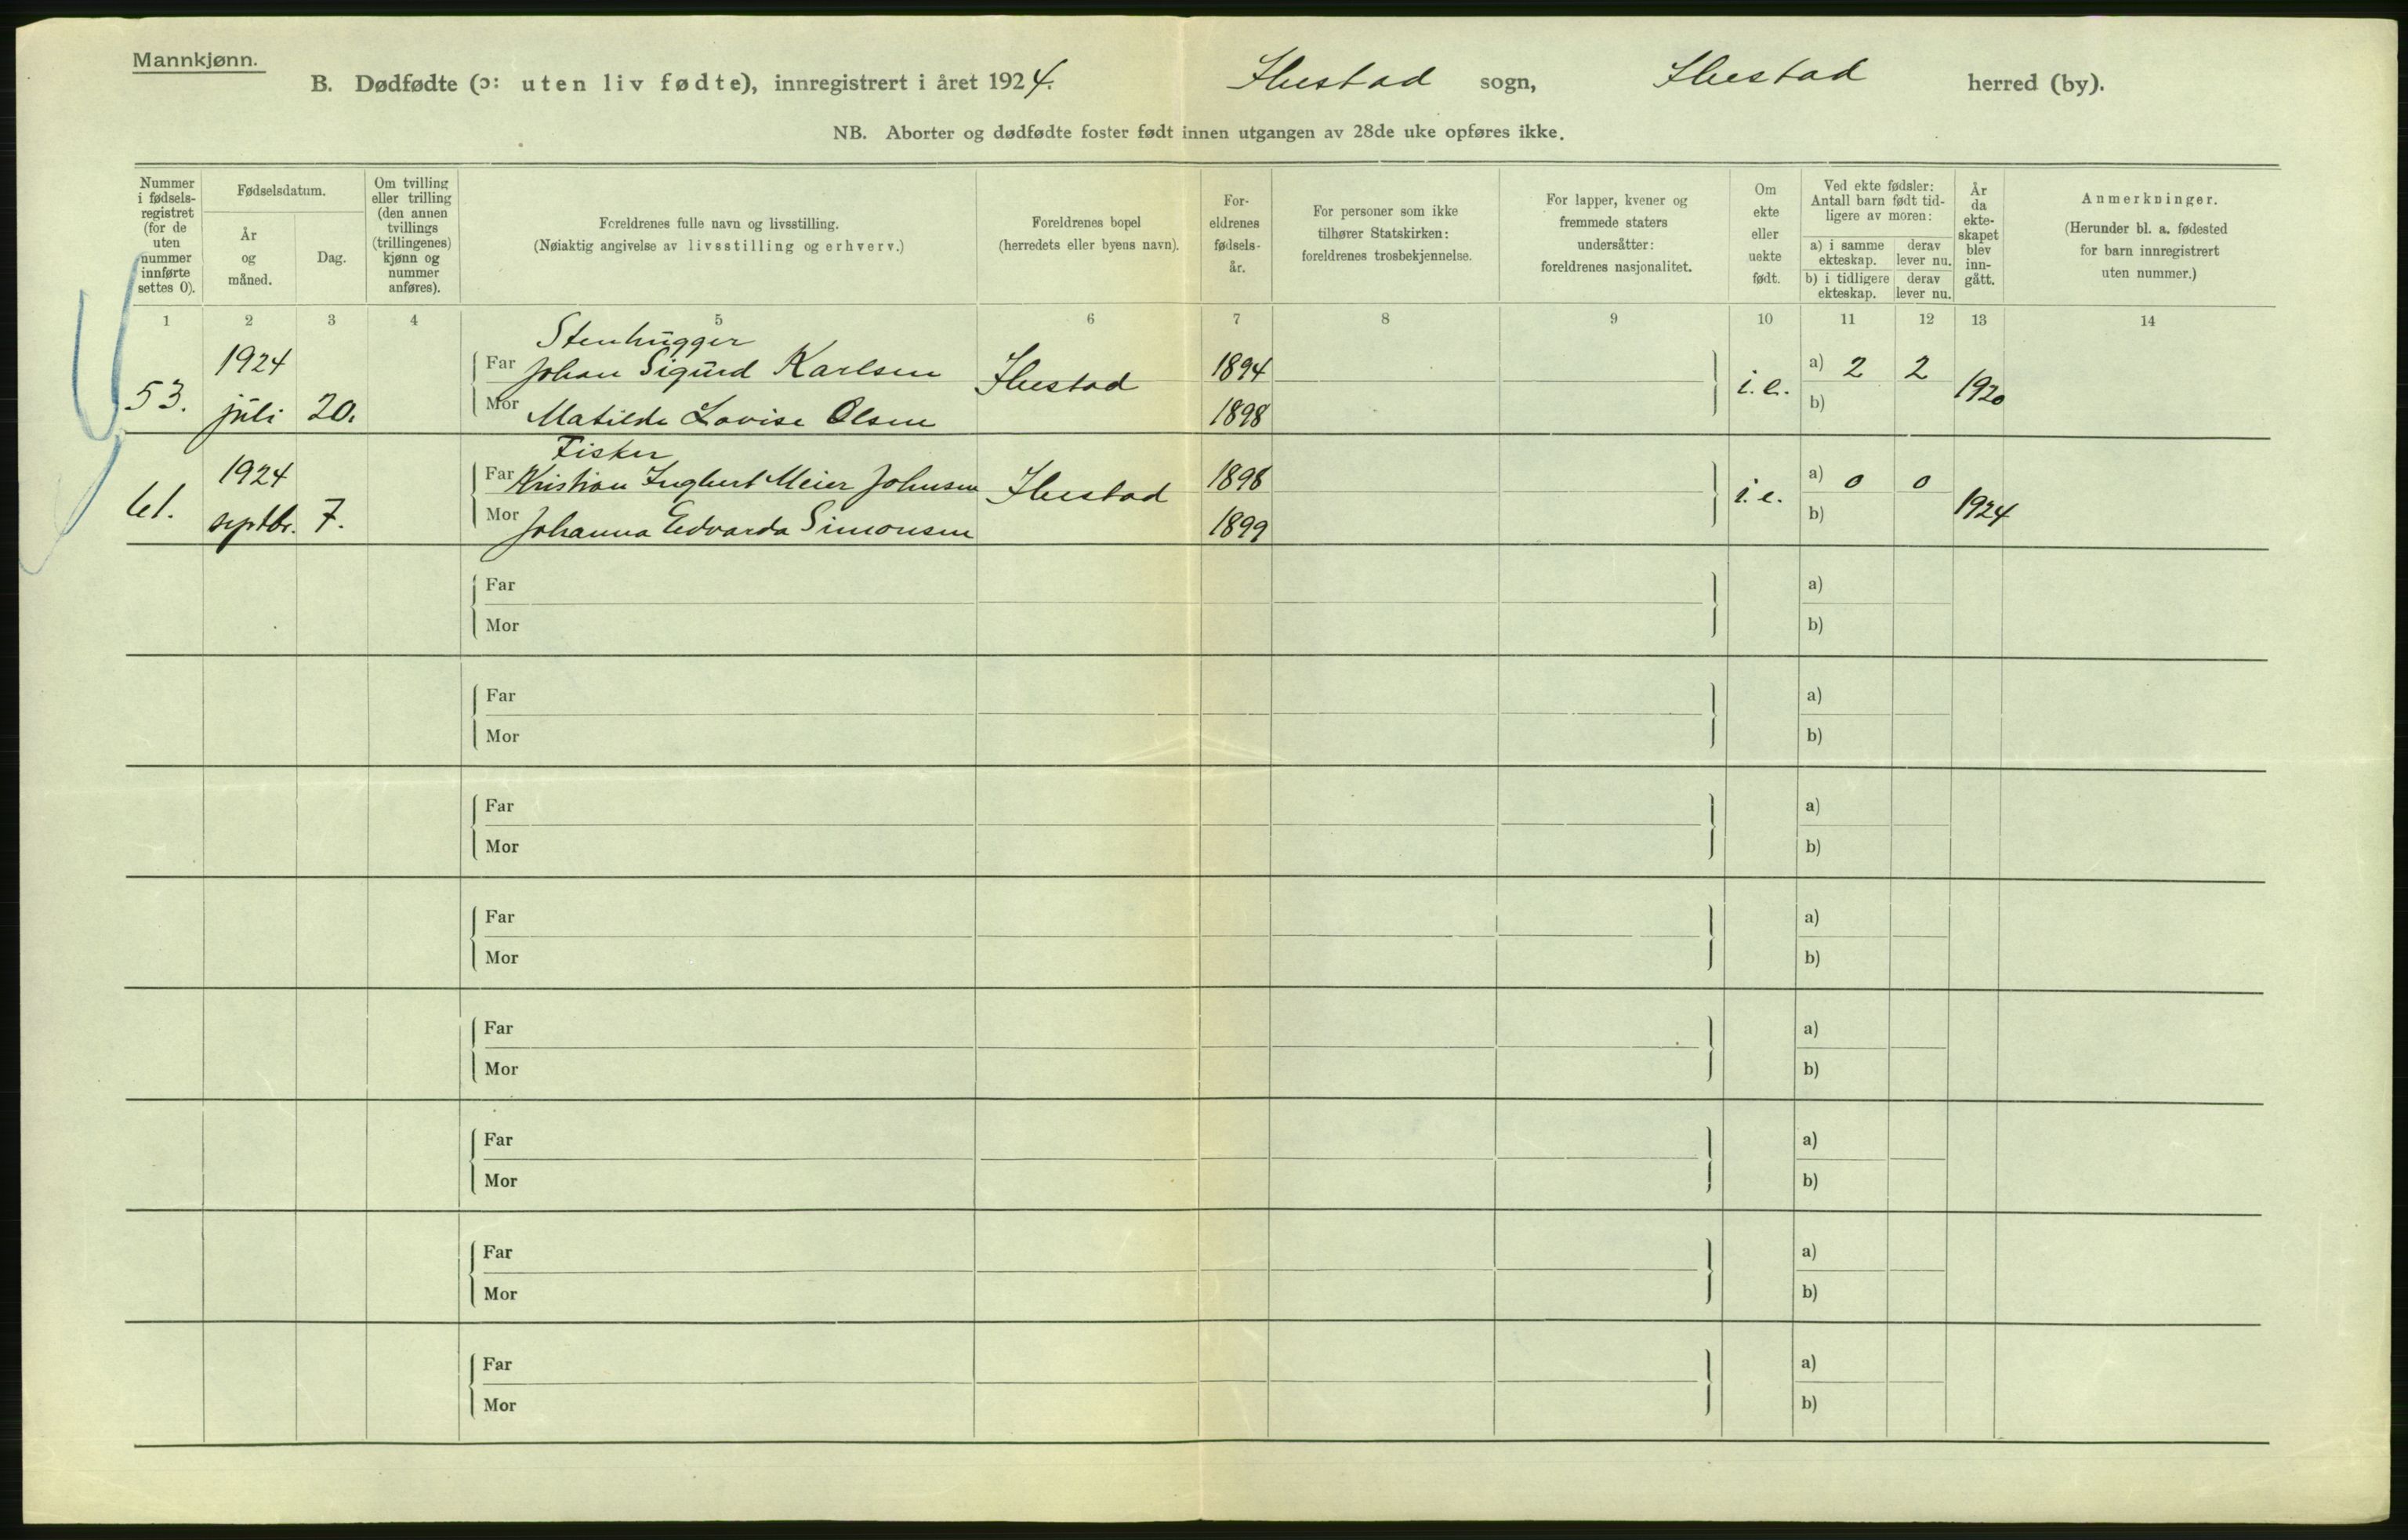 Mannkjønn.
B. Dødfødte (ɔ: uten liv fødte), innregistrert i året 1924. Ibestad sogn, Ibestad herred (by).
NB. Aborter og dødfødte foster født innen utgangen av 28de uke opføres ikke.
Nummer i fødsels-registret (for de uten nummer innførte settes 0).
Fødselsdatum.
År og måned.
Dag.
Om tvilling eller trilling (den annen tvillings (trillingenes) kjønn og nummer anføres).
Foreldrenes fulle navn og livsstilling.
(Nøiaktig angivelse av livsstilling og erhverv.)
Foreldrenes bopel
(herredets eller byens navn).
For-eldrenes fødsels-år.
For personer som ikke tilhører Statskirken: foreldrenes trosbekjennelse.
For lapper, kvener og fremmede staters undersåtter: foreldrenes nasjonalitet.
Om ekte eller uekte født.
Ved ekte fødsler: Antall barn født tid-ligere av moren:
a) i samme ekteskap.
derav lever nu.
b) i tidligere ekteskap.
derav lever nu.
År da ekte-skapet blev inn-gått.
Anmerkninger.
(Herunder bl. a. fødested for barn innregistrert uten nummer.)
1 2 3 4 5 6 7 8 9 10 11 12 13 14
Stenhugger
53. 1924 juli 20. Far Johan Sigurd Karlsen Ibestad 1894 i.e. a) 2 2 1920
Mor Matilde Lovise Olsen 1898 b)
Fisker
61. 1924 septbr. 7. Far Kristian Ingbert Meier Johnsen Ibestad 1898 i.e. a) 0 0 1924
Mor Johanna Edvarda Simonsen 1899 b)
Far a)
Mor b)
Far a)
Mor b)
Far a)
Mor b)
Far a)
Mor b)
Far a)
Mor b)
Far a)
Mor b)
Far a)
Mor b)
Far a)
Mor b)